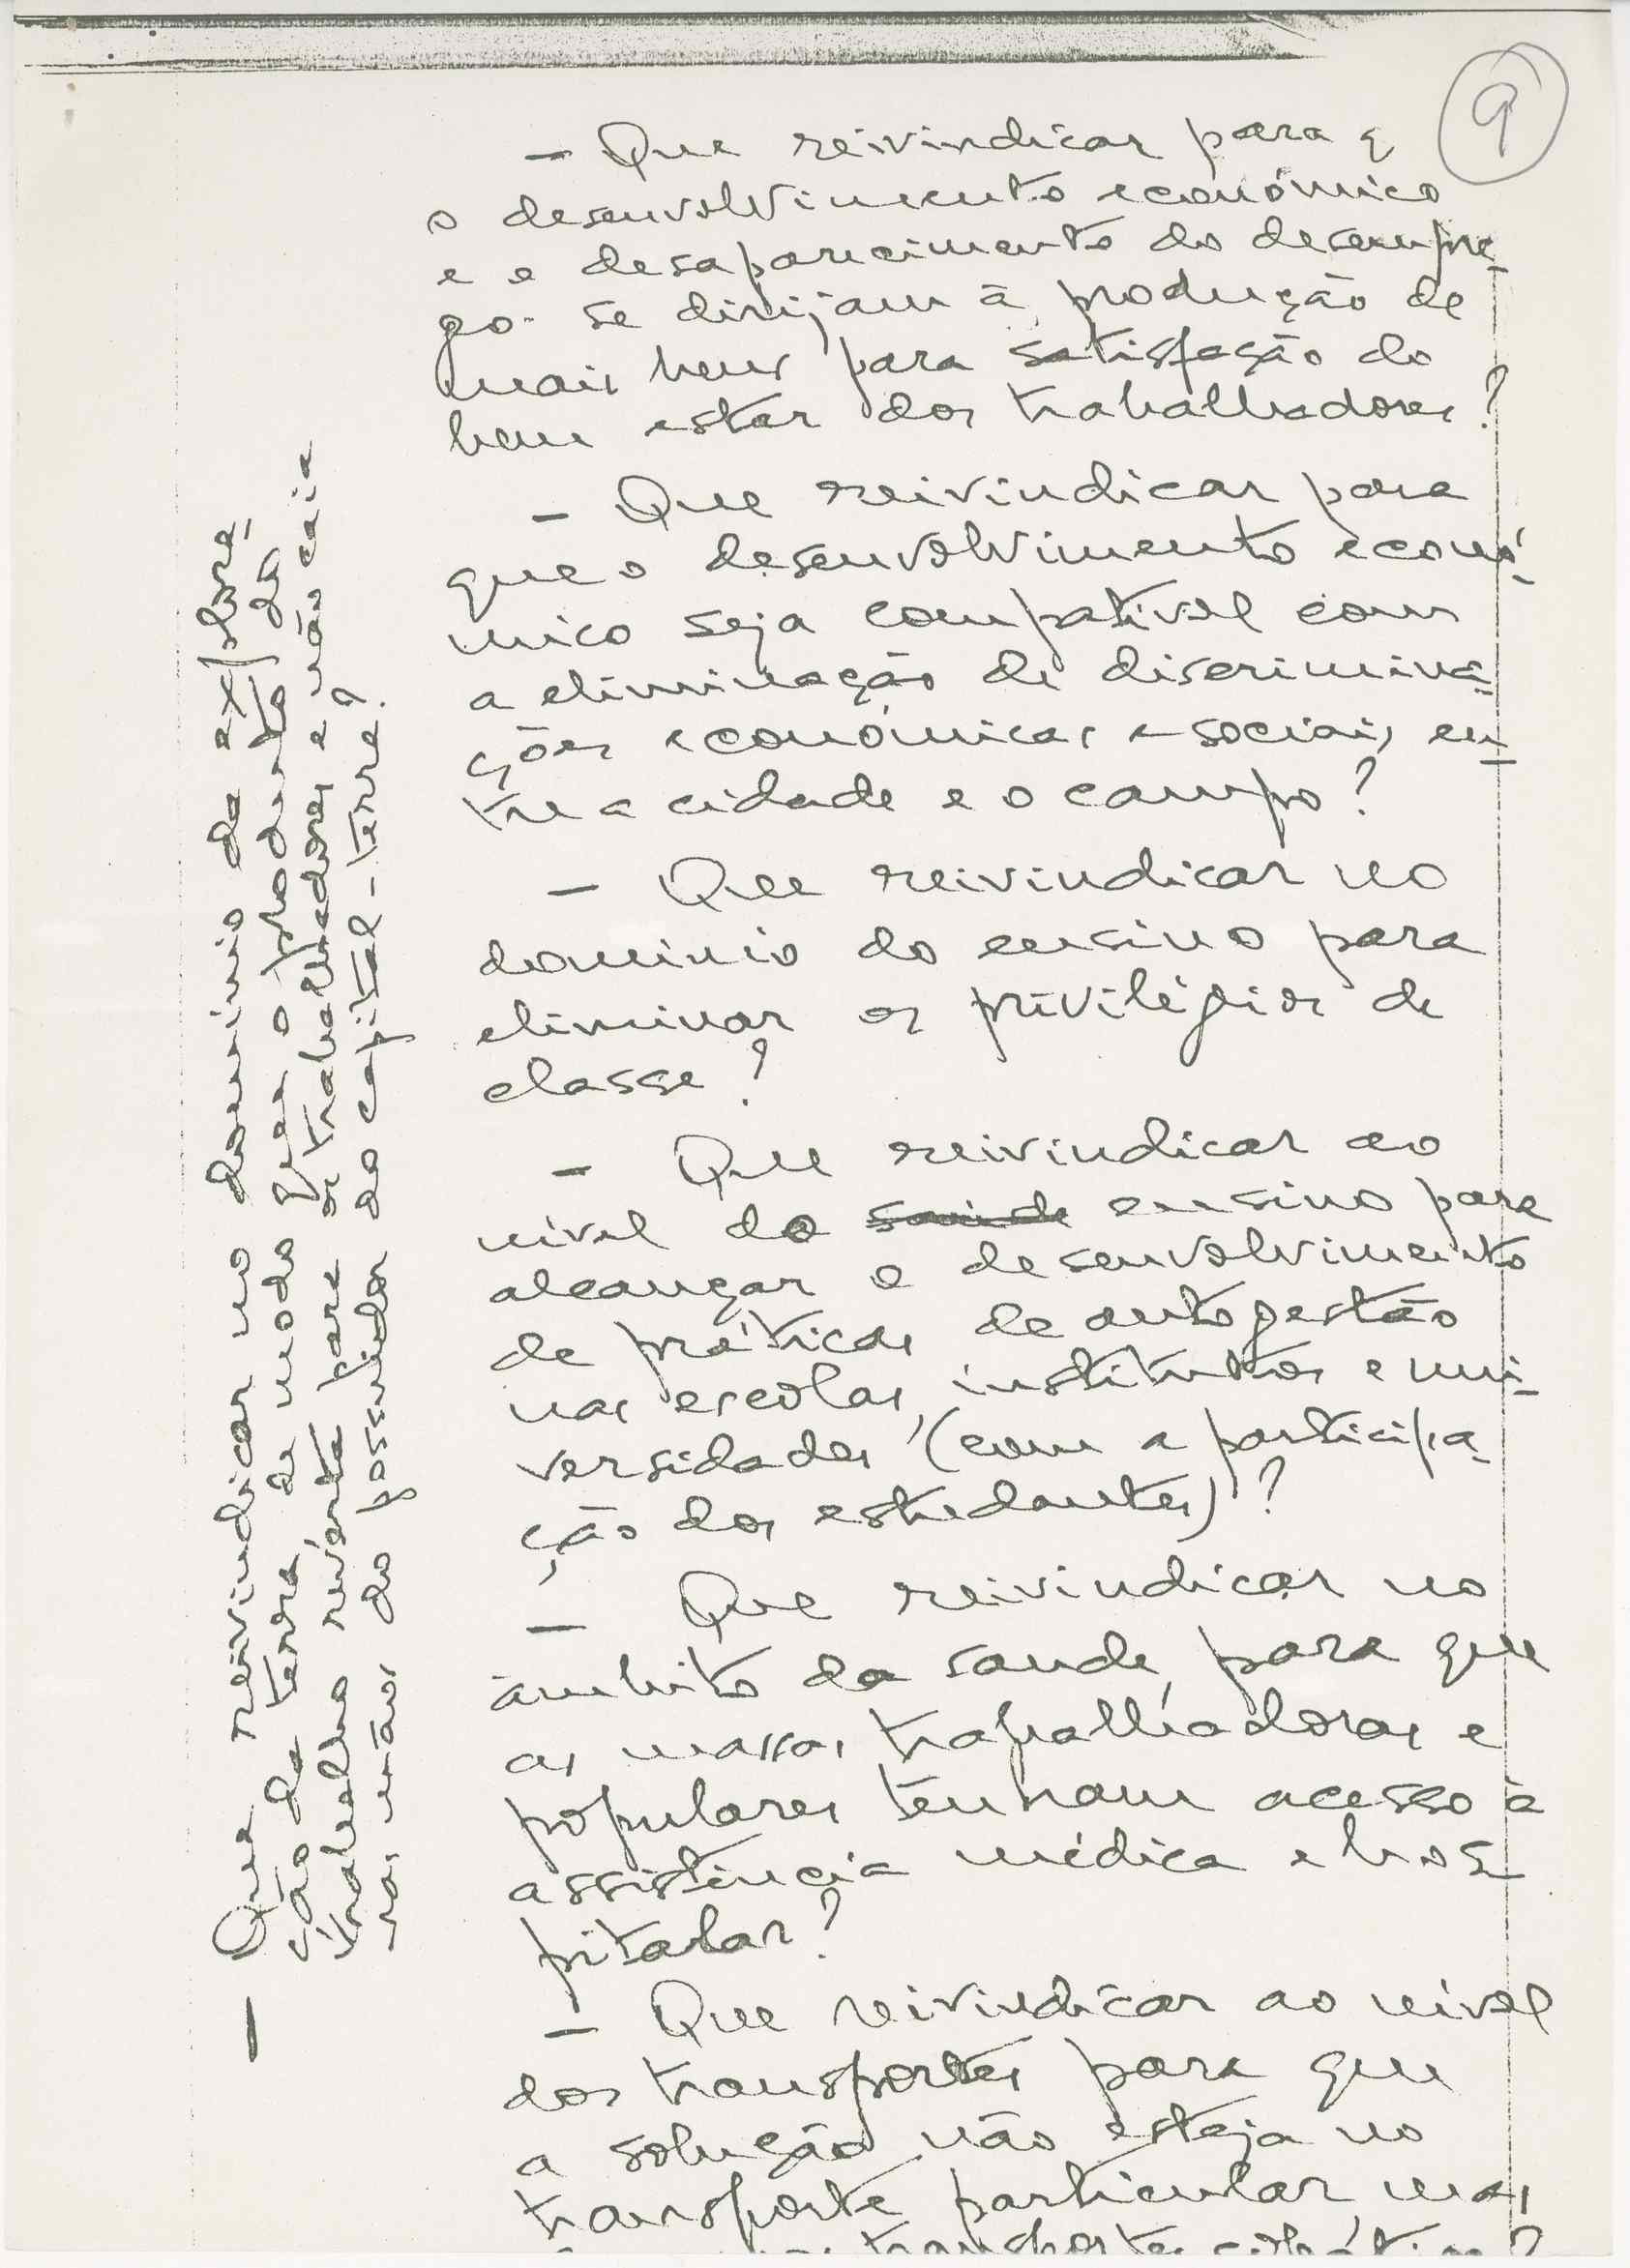 9
- Que reivindicar para q
o desenvolvimento económico
e o desaparecimento do desempre-
go se dirijam à produção de
mais bens para satisfação do
bem estar dos trabalhadores?
- Que reivindicar para
que o desenvolvimento econó-
mico seja compatível com
a eliminação de discrimina-
ções económicas e sociais en-
tre a cidade e o campo?
- Que reivindicar no
domínio do ensino para
eliminar os privilégios de
classe?
- Que reivindicar ao
nível do saúde ensino para
alcançar o desenvolvimento
de práticas de autogestão
nas escolas, institutos e uni-
versidades (com a participa-
ção dos estudantes)?
- Que reivindicar no
âmbito da saúde para que
as massas trabalhadoras e
populares tenham acesso à
assistência médica e hos-
pitalar?
- Que reivindicar ao nível
dos transportes para que
a solução não esteja no
transporte particular, mas
transportes
- Que reivindicar no domínio da explora-
ção da terra, de modo que o produto do
trabalho reverta para os trabalhadores e não caia
nas mãos do possuidor do capital-terra?